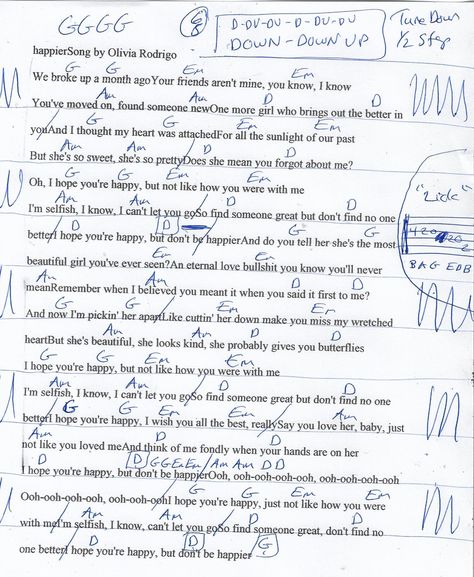 GGGG
G
D-DU-DU-D-DU-DU
DOWN-DOWN UP
Tune Down
1/2 Step
happierSong by Olivia Rodrigo
G G Em Em
We broke up a month agoYour friends aren't mine, you know, I know
Am Am D D
You've moved on, found someone newOne more girl who brings out the better in
G G Em Em
youAnd I thought my heart was attachedFor all the sunlight of our past
Am Am D D
But she's so sweet, she's so prettyDoes she mean you forgot about me?
G G Em Em
Oh, I hope you're happy, but not like how you were with me
Am Am D D
I'm selfish, I know, I can't let you goSo find someone great but don't find no one
D G G
betterI hope you're happy, but don't be happierAnd do you tell her she's the most
Em Em
beautiful girl you've ever seen?An eternal love bullshit you know you'll never
Am Am D D
meanRemember when I believed you meant it when you said it first to me?
G G Em Em
And now I'm pickin' her apartLike cuttin' her down make you miss my wretched
Am Am D D
heartBut she's beautiful, she looks kind, she probably gives you butterflies
G G Em Em
I hope you're happy, but not like how you were with me
Am Am D D
I'm selfish, I know, I can't let you goSo find someone great but don't find no one
G G Em Em Am
betterI hope you're happy, I wish you all the best, reallySay you love her, baby, just
Am D D
not like you loved meAnd think of me fondly when your hands are on her
D D GGEmEm/Am Am DD
I hope you're happy, but don't be happierOoh, ooh-ooh-ooh-ooh, ooh-ooh-ooh-ooh
G G Em Em
Ooh-ooh-ooh-ooh, ooh-ooh-oohI hope you're happy, just not like how you were
Am Am D D
with meI'm selfish, I know, can't let you goSo find someone great, don't find no
D D G
one betterI hope you're happy, but don't be happier
"Lick"
420
BAG EDB